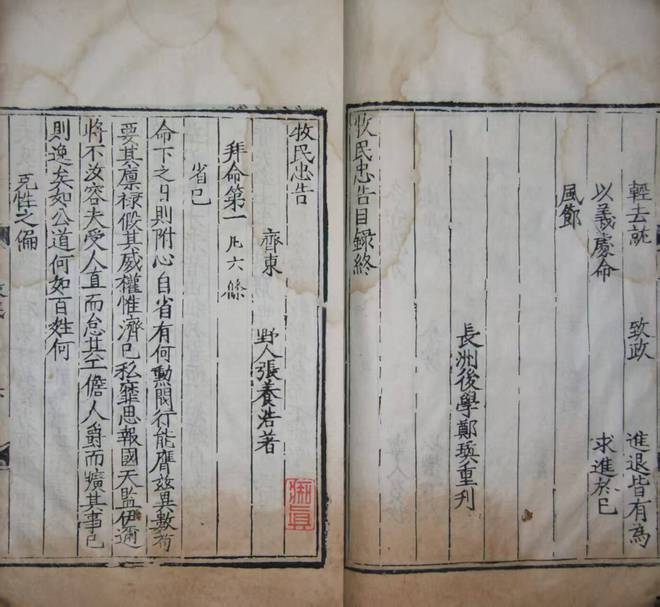 輕去就 致政 進退皆有為
以義處命 求進於己
風節
長洲後學鄭瑛重刊
牧民忠告目録終
牧民忠告
齊東 野人張養浩著
拜命第一 凡六條
省己
命下之日則附心自省有何勲閥行能膺兹異數苟
要其廩禄假其威權惟濟己私靡思報國天監伊邇
將不汝容夫受人直而怠其工儋人爵而曠其事己
則逸矣如公道何如百姓何
克性之偏